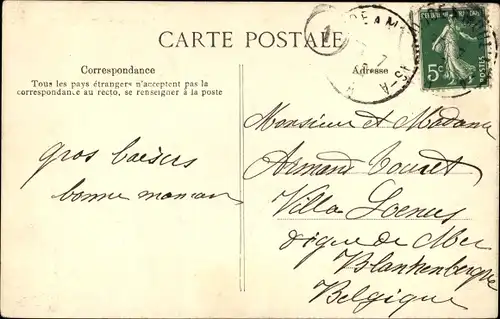 CARTE POSTALE
Correspondance
Tous les pays étrangers n'acceptent pas la
correspondance au recto, se renseigner à la poste
Adresse
5c
POSTES
1
gros baisers
bonne maman
Monsieur et Madame
Armand
Villa
digue de Mer
Blankenberghe
Belgique